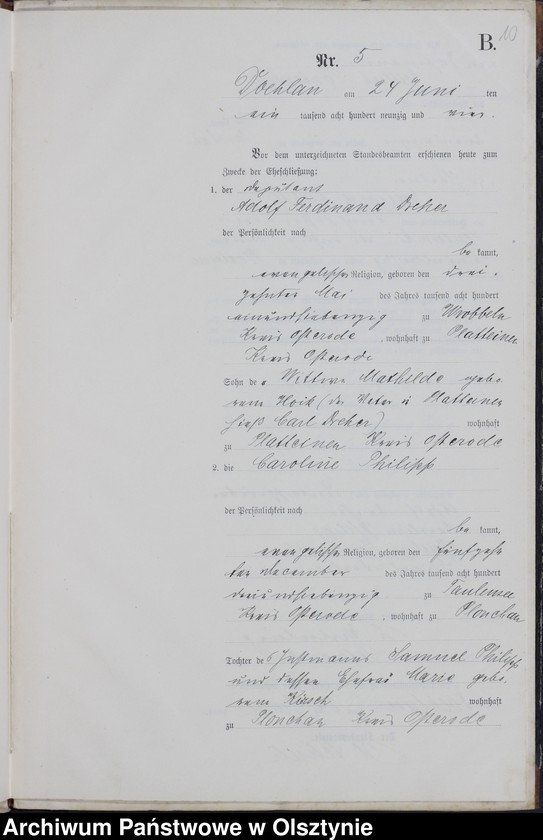 B. 10
Nr. 5
Doehlau am 24 Juni ten
ein tausend acht hundert neunzig und vier.
Vor dem unterzeichneten Standesbeamten erschienen heute zum
Zwecke der Eheschließung:
1. der Deputant
Adolf Ferdinand Dreher
der Persönlichkeit nach
be kannt,
evangelischer Religion, geboren den drei-
zehnten Mai des Jahres tausend acht hundert
einundsiebenzig zu Wrobbeln
Kreis Osterode, wohnhaft zu Platteinen
Kreis Osterode
Sohn der Wittwe Mathilde gebo-
renen (der Vater in Platteinen
hieß Carl Dreher) wohnhaft
zu Platteinen Kreis Osterode
2. die Caroline Philipp
der Persönlichkeit nach
be kannt,
evangelischer Religion, geboren den fünfzehn-
ten December des Jahres tausend acht hundert
dreiundsiebenzig zu Taulensee
Kreis Osterode, wohnhaft zu Plonchau
Tochter des Instmanns Samuel Philipp
und dessen Ehefrau Marie gebo-
renen Kirsch wohnhaft
zu Plonchau Kreis Osterode
Archiwum Państwowe w Olsztynie